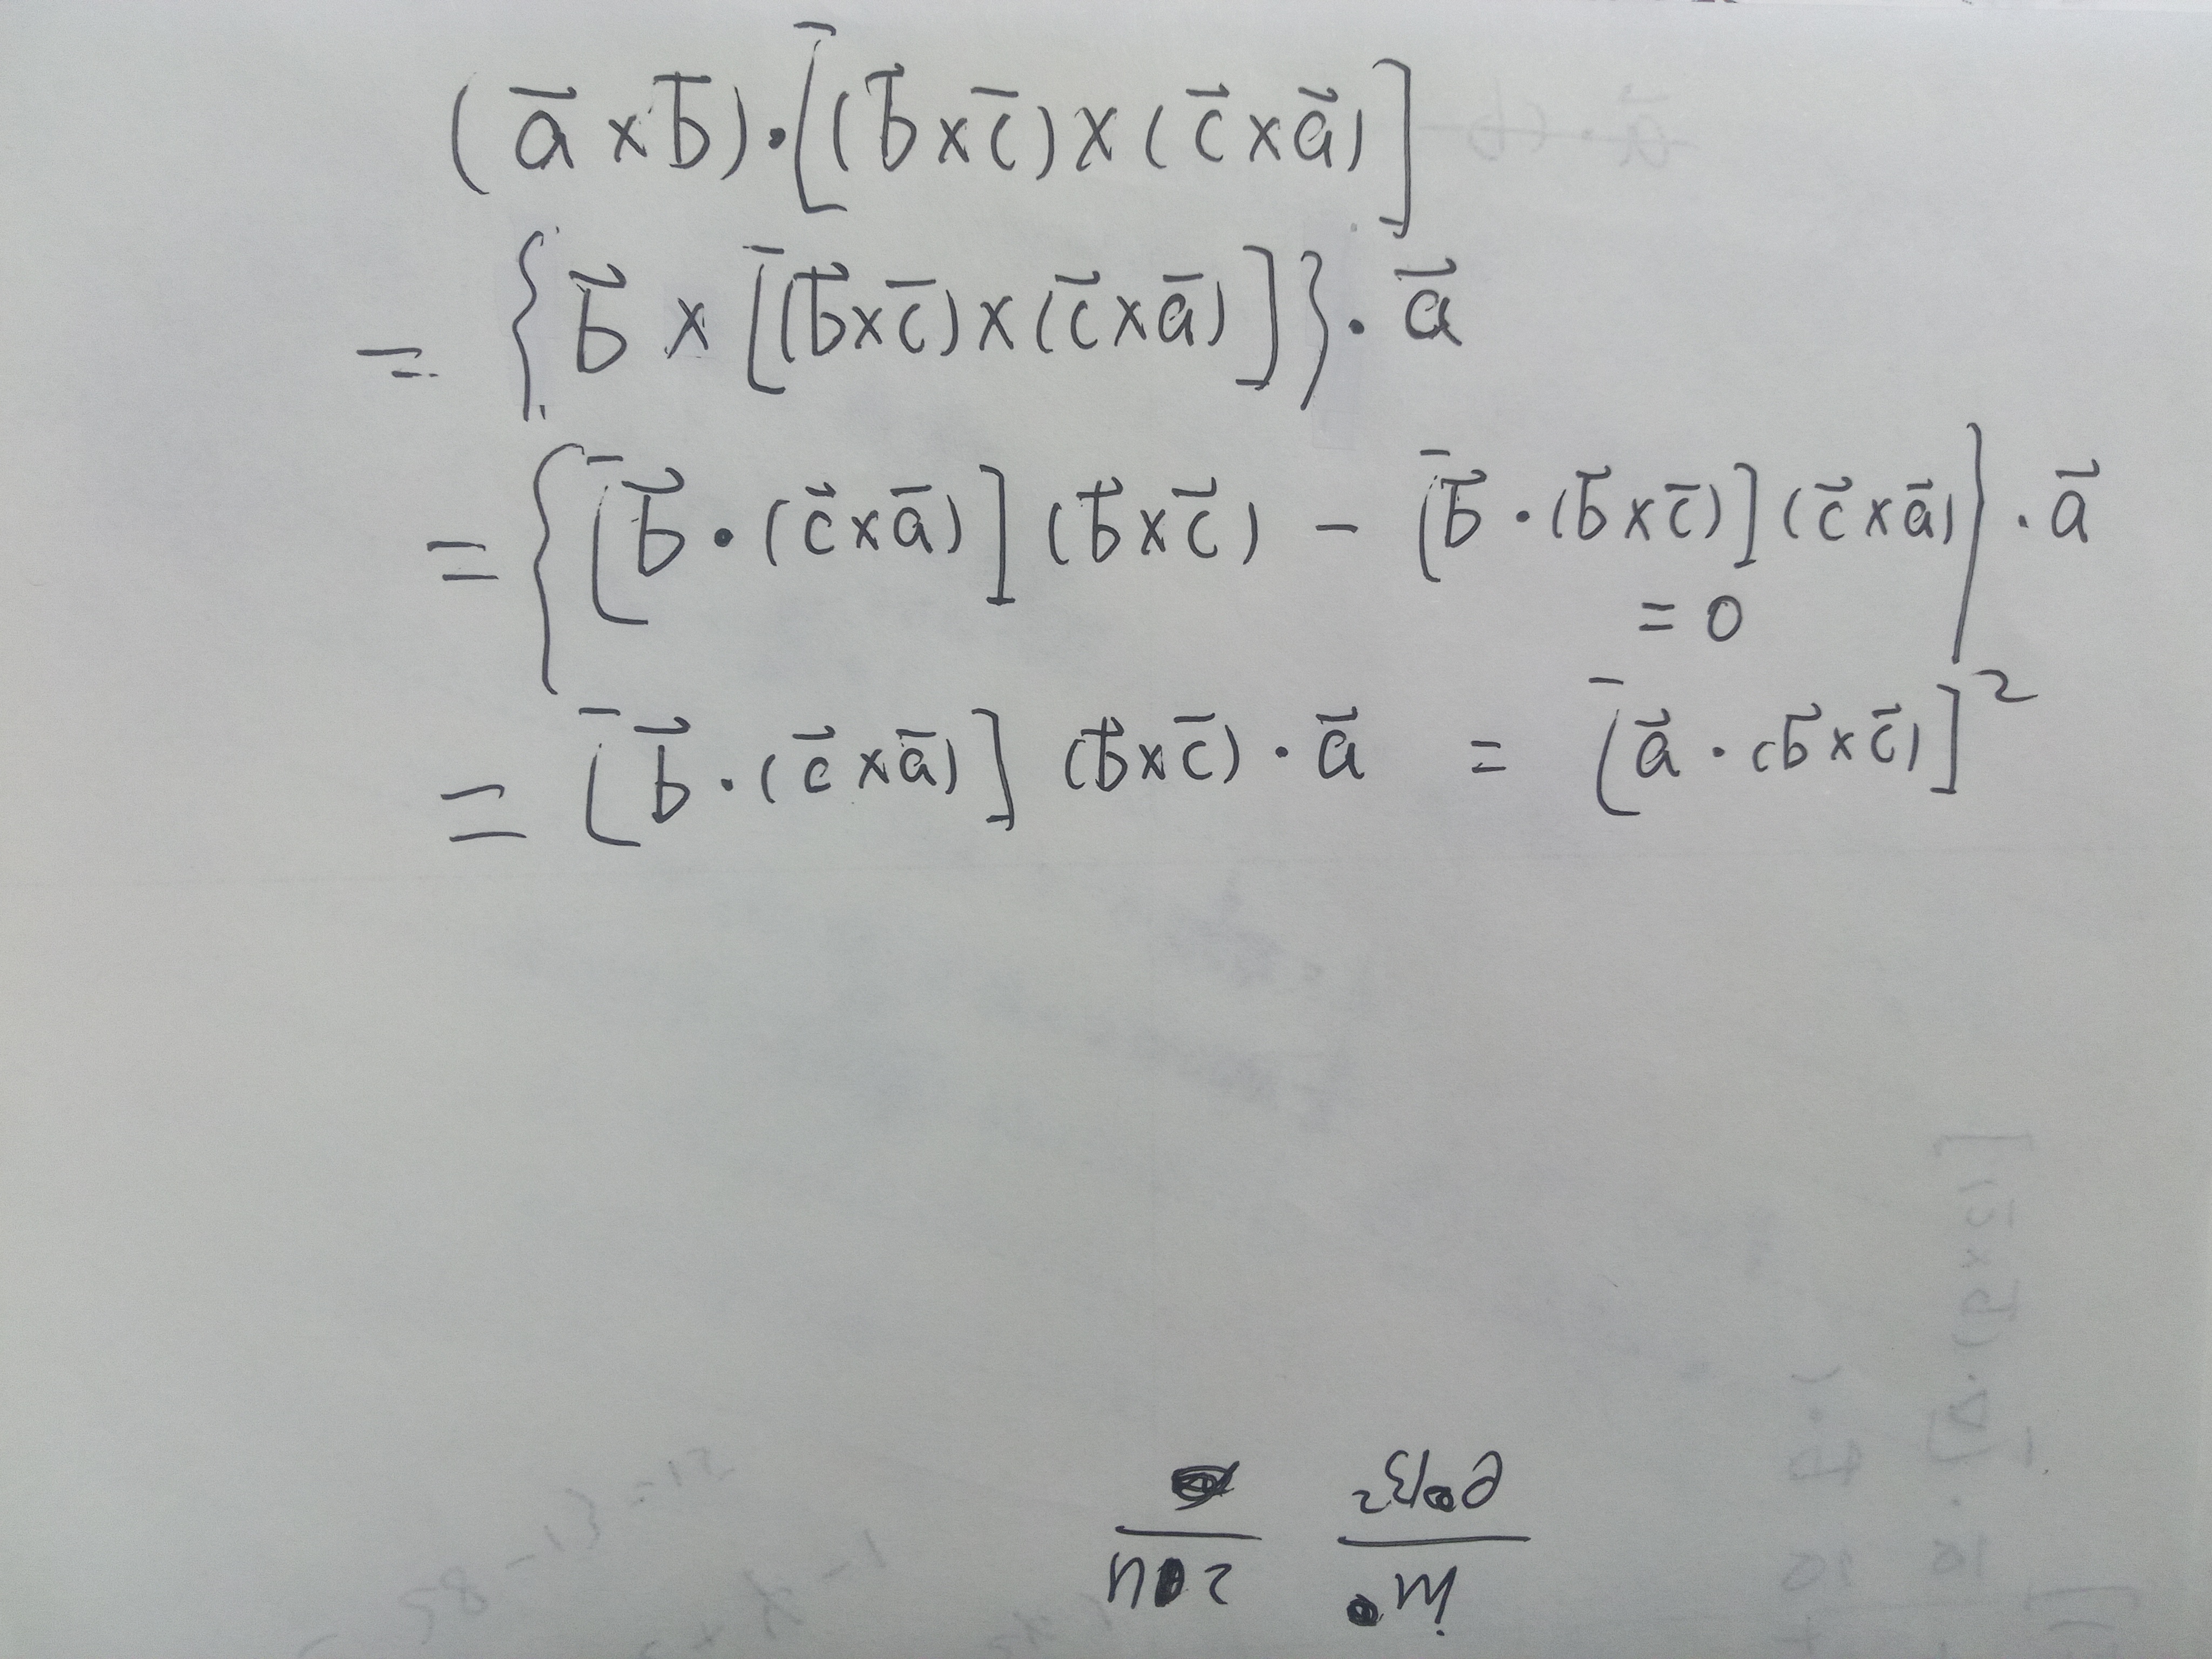 (a⃗ × b⃗) · [(b⃗ × c⃗) × (c⃗ × a⃗)]
= {b⃗ × [(b⃗ × c⃗) × (c⃗ × a⃗)]} · a⃗
= {[b⃗ · (c⃗ × a⃗)] (b⃗ × c⃗) - [b⃗ · (b⃗ × c⃗)] (c⃗ × a⃗)} · a⃗
= 0
= [b⃗ · (c⃗ × a⃗)] (b⃗ × c⃗) · a⃗ = [a⃗ · (b⃗ × c⃗)]²